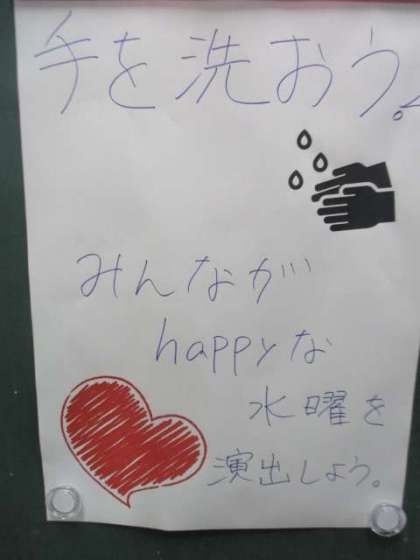 手を洗おう。
みんなが
happyな
水曜を
演出しよう。